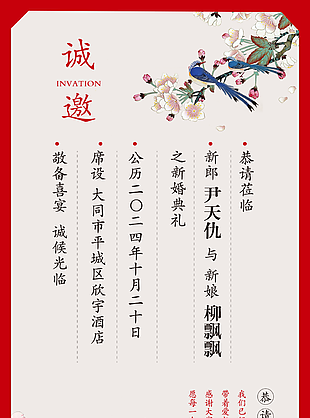 诚
INVATION
邀
恭请莅临
新郎 尹天仇 与 新娘 柳飘飘
之新婚典礼
公历二〇二四年十月二十日
席设 大同市平城区欣宇酒店
敬备喜宴 诚候光临
恭请
我们已
带着爱
感谢大
愿每一